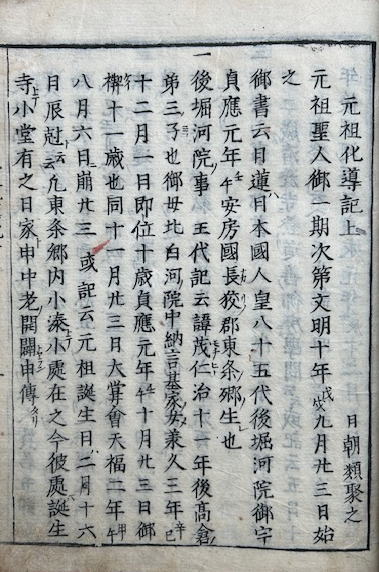 元祖化導記上 日朝類聚之
元祖聖人御一期次第文明十年戊戌九月廿三日始
之
御書云日蓮日本國人皇八十五代後堀河院御宇
貞應元年壬午安房國長狹郡東条郷生也
一後堀河院事 王代記云諱茂仁治十一年後高倉
弟三子也御母北白河院中納言基家女兼久三年辛巳
十二月一日即位十歳貞應元年壬午十月廿三日御
禊十一歳也同十一月廿三日大嘗會天福二年甲午
八月六日崩廿三 或記云元祖誕生日二月十六
日辰尅云云九東条郷内小湊小處在之今彼處誕生
寺小堂有之日家申中老開闢申傳タリ